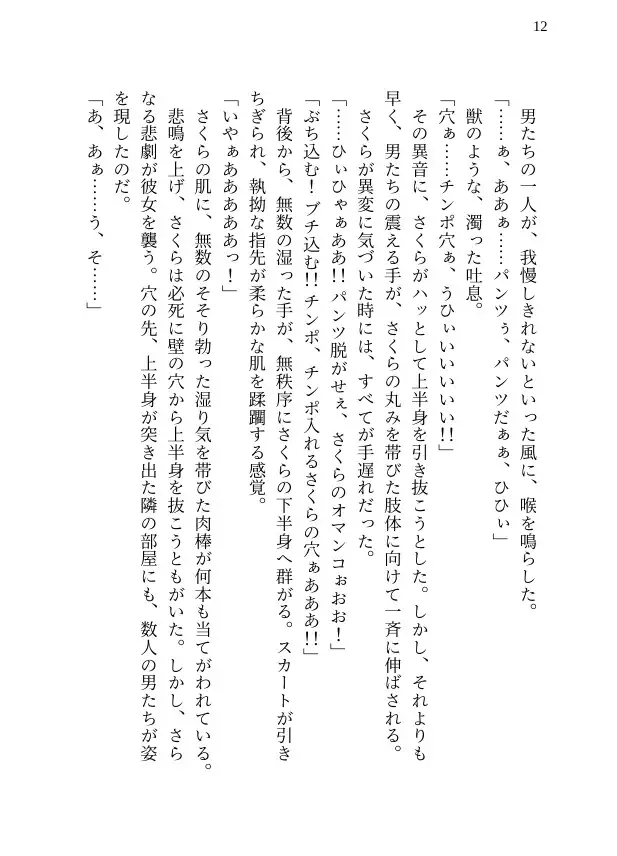 12
男たちの一人が、我慢しきれないといった風に、喉を鳴らした。
「……ぁ、ああぁ……パンツぅ、パンツだぁぁ、ひひぃ」
獣のような、濁った吐息。
「穴ぁ……チンポ穴ぁ、うひぃいいいいい!!」
その異音に、さくらがハッとして上半身を引き抜こうとした。しかし、それよりも
早く、男たちの震える手が、さくらの丸みを帯びた肢体に向けて一斉に伸ばされる。
さくらが異変に気づいた時には、すべてが手遅れだった。
「……ひぃひゃぁああ!! パンツ脱がせぇ、さくらのオマンコぉおお!」
「ぶち込む! ブチ込む!! チンポ、チンポ入れるさくらの穴ぁあああ!!」
背後から、無数の湿った手が、無秩序にさくらの下半身へ群がる。スカートが引き
ちぎられ、執拗な指先が柔らかな肌を蹂躙する感覚。
「いやぁあああああっ!」
さくらの肌に、無数のそそり勃った湿り気を帯びた肉棒が何本も当てがわれている。
悲鳴を上げ、さくらは必死に壁の穴から上半身を抜こうともがいた。しかし、さら
なる悲劇が彼女を襲う。穴の先、上半身が突き出た隣の部屋にも、数人の男たちが姿
を現したのだ。
「あ、あぁ……う、そ……」